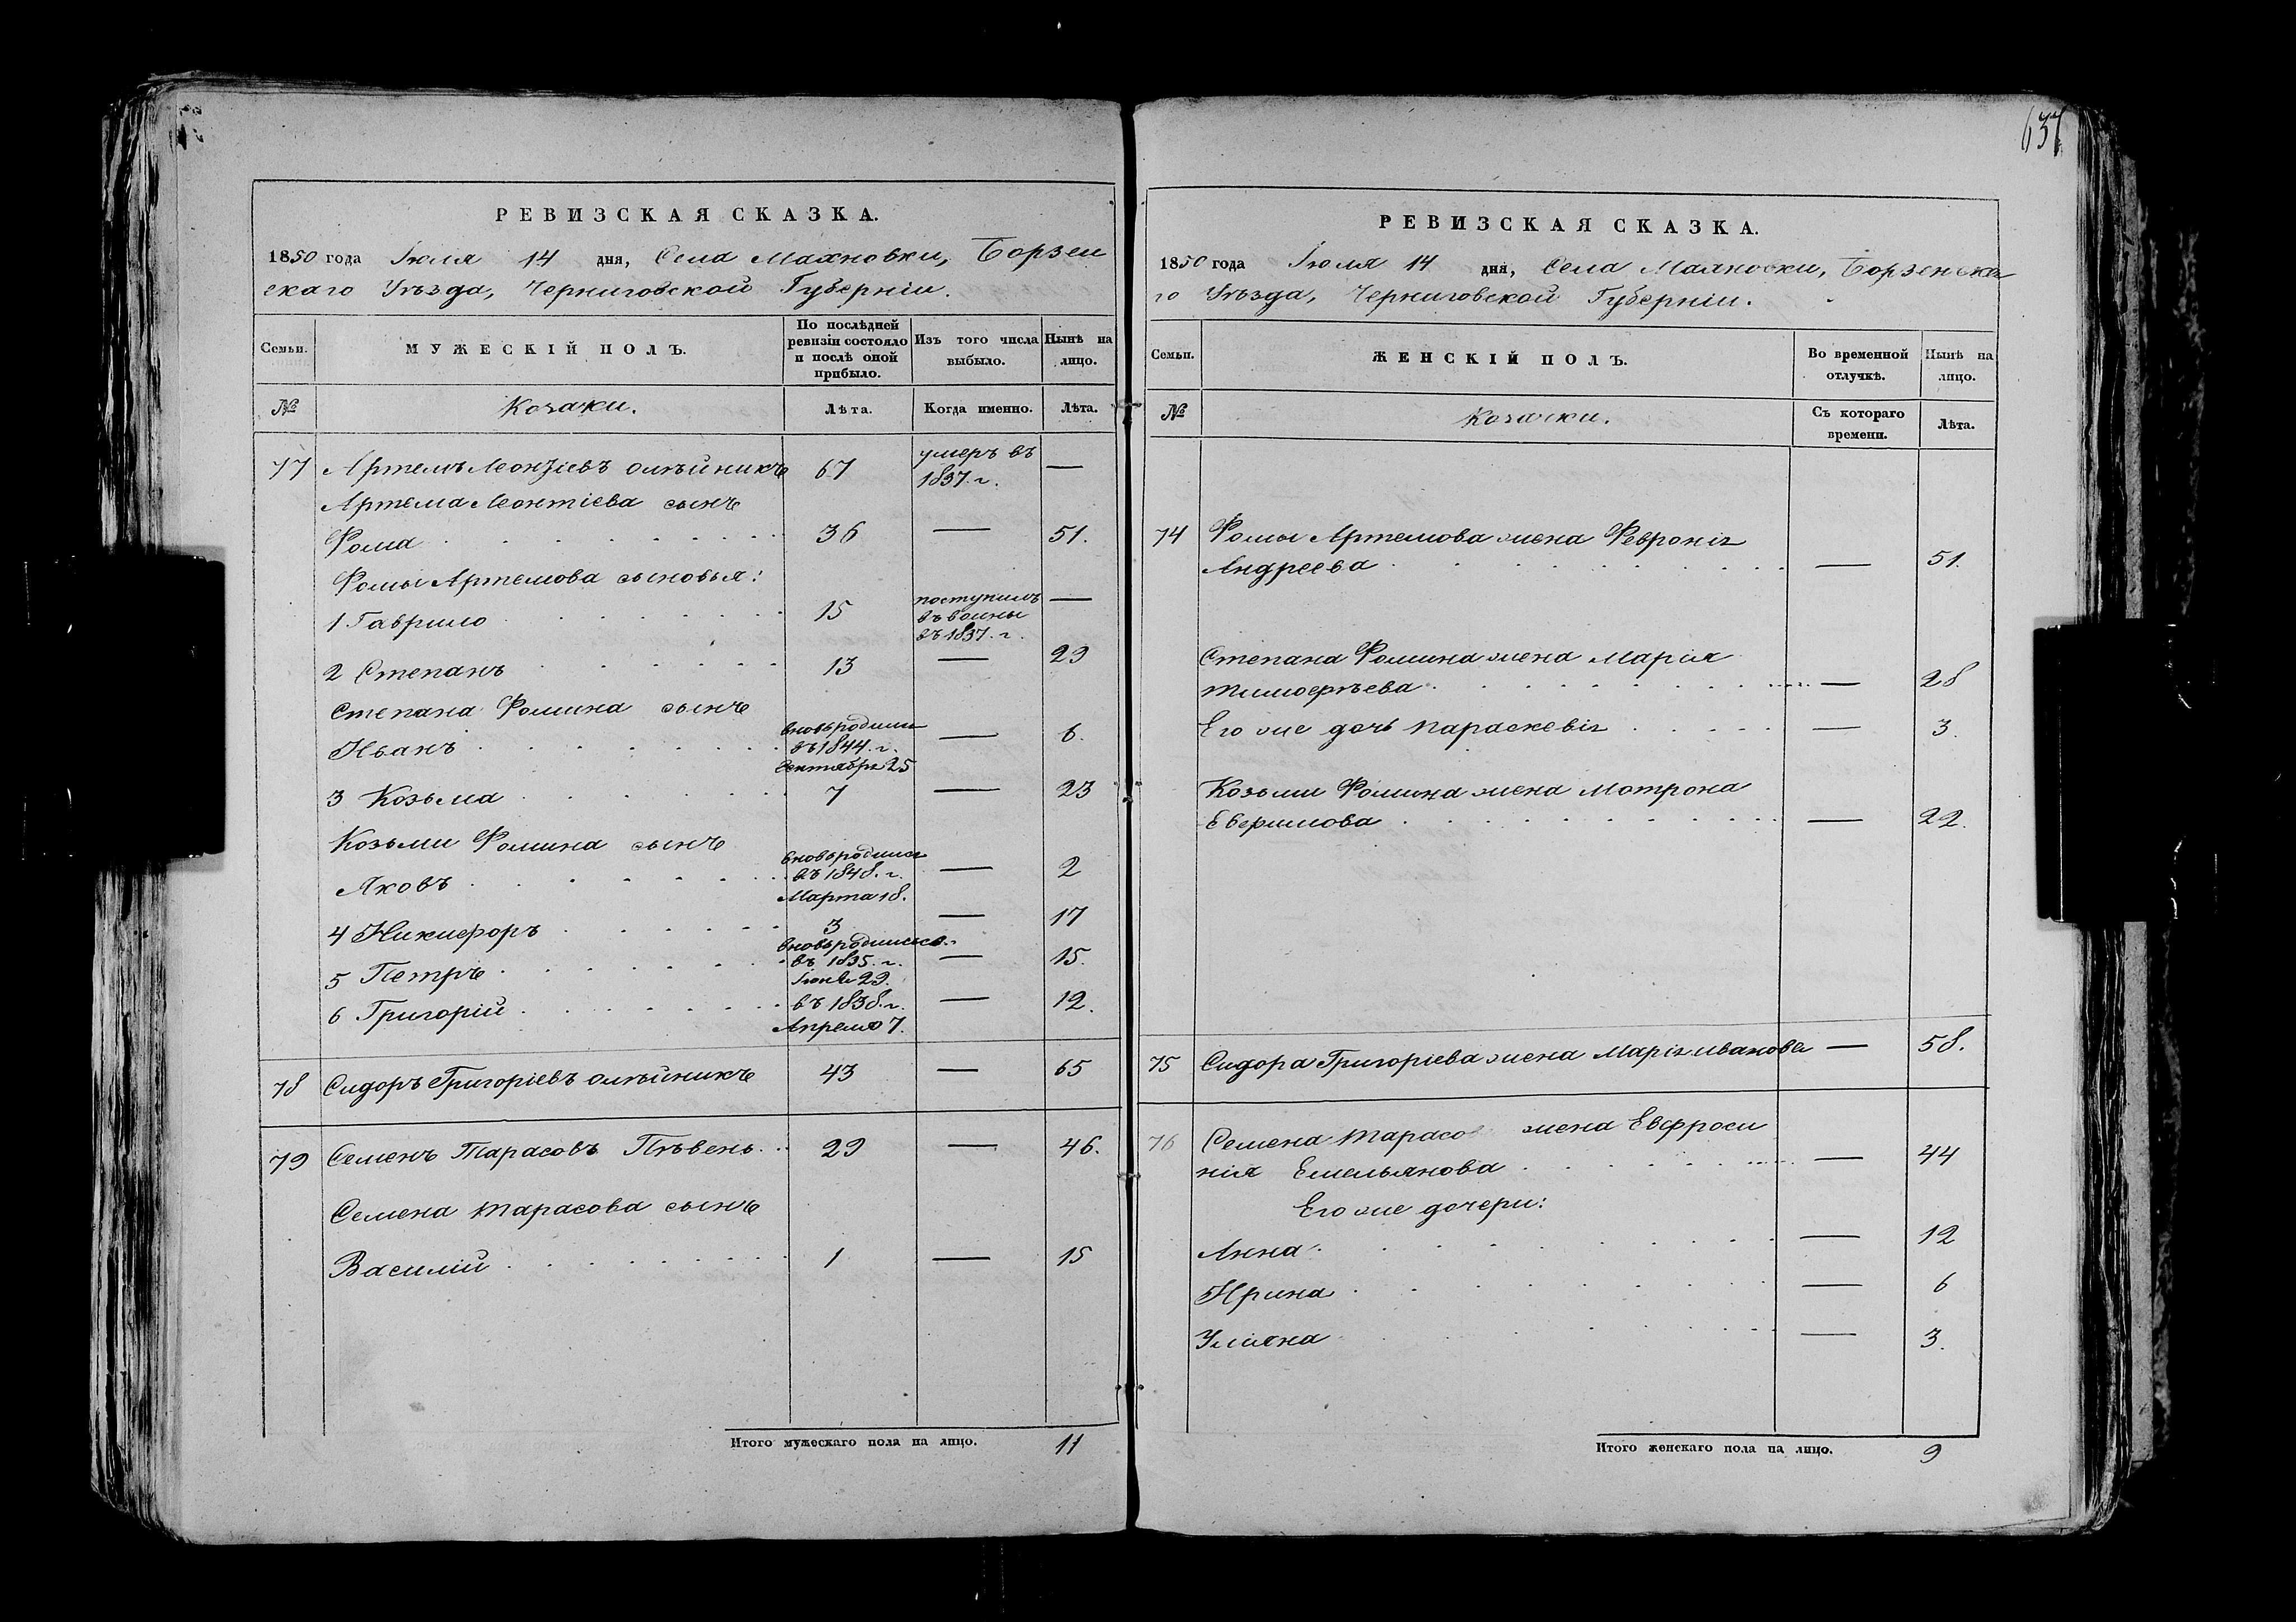 637
РЕВИЗСКАЯ СКАЗКА.
1850 года Іюля 14 дня, Села Маяновки, Борзен
скаго Уѣзда, Черниговской Губерніи.
Семьи.
МУЖЕСКІЙ ПОЛЪ.
По послѣдней ревизіи состояло и послѣ оной прибыло.
Изъ того числа выбыло.
Нынѣ на лицо.
№
Козаки.
Лѣта.
Когда именно.
Лѣта.
77 Артемъ Леонтіевъ Олѣйникъ 67 умеръ въ 1837. г. —
Артема Леонтіева сынъ
Фома 36 — 51.
Фомы Артемова сыновья:
1 Гаврило 15 поступилъ въ воины въ 1837. г. —
2 Степанъ 13 — 29
Степана Фомина сынъ
Иванъ вновьродился въ 1844. г. Сентября 25 — 6.
3 Козьма 7 — 23
Козьми Фомина сынъ
Яковъ вновьродился въ 1848. г. Марта 18. — 2
4 Никифоръ 3 — 17
5 Петръ вновьродился въ 1835. г. Іюня 29. — 15.
6 Григорій въ 1838. г. Апреля 7. — 12.
78 Сидоръ Григоріевъ Олѣйникъ 43 — 65
79 Семенъ Тарасовъ Пѣвень 29 — 46.
Семена Тарасова сынъ
Василій 1 — 15
Итого мужескаго пола на лицо. 11
РЕВИЗСКАЯ СКАЗКА.
1850 года Іюля 14 дня, Села Маяновки, Борзенска
го Уѣзда, Черниговской Губерніи.
Семьи.
ЖЕНСКІЙ ПОЛЪ.
Во временной отлучкѣ.
Нынѣ на лицо.
№
Козачки.
Съ котораго времени.
Лѣта.
74 Фомы Артемова жена Февронія
Андреева — 51.
Степана Фомина жена Марія
Тимофѣева — 28
Его же дочь Параскевія — 3.
Козьми Фомина жена Мотрона
Евфимова — 22.
75 Сидора Григоріева жена Марія Иванова — 58.
76 Семена Тарасов жена Евфроси
нія Емельянова — 44
Его же дочери:
Анна — 12
Ирина — 6
Уліяна — 3.
Итого женскаго пола на лицо. 9